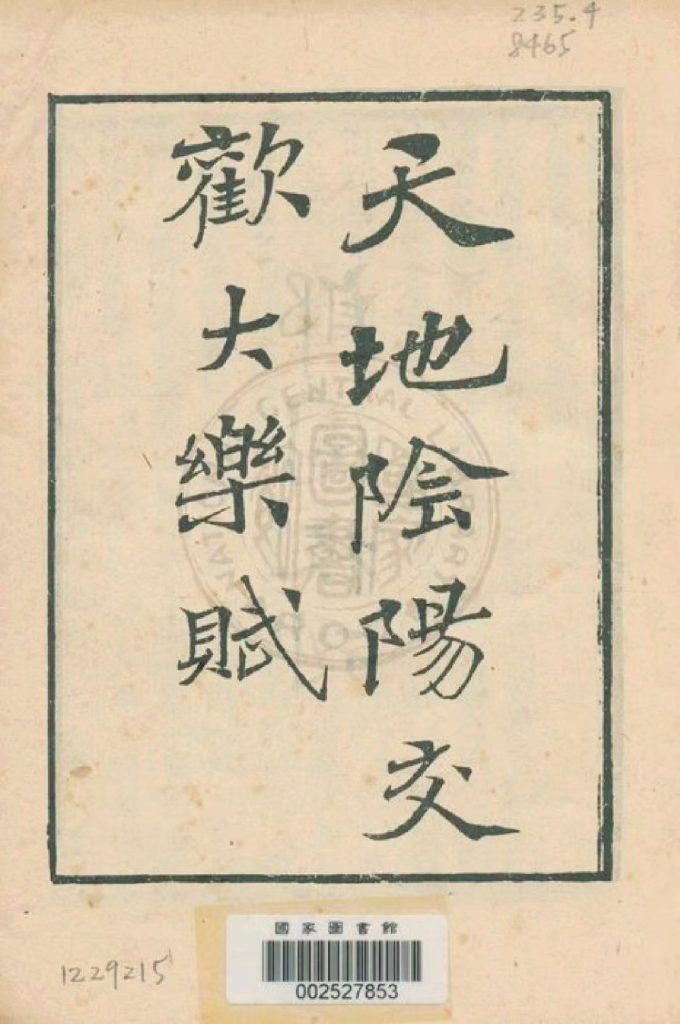 235.4
8465
天地陰陽交
歡大樂賦
NATIONAL CENTRAL LIBRARY
國家圖書館
002527853
1229215